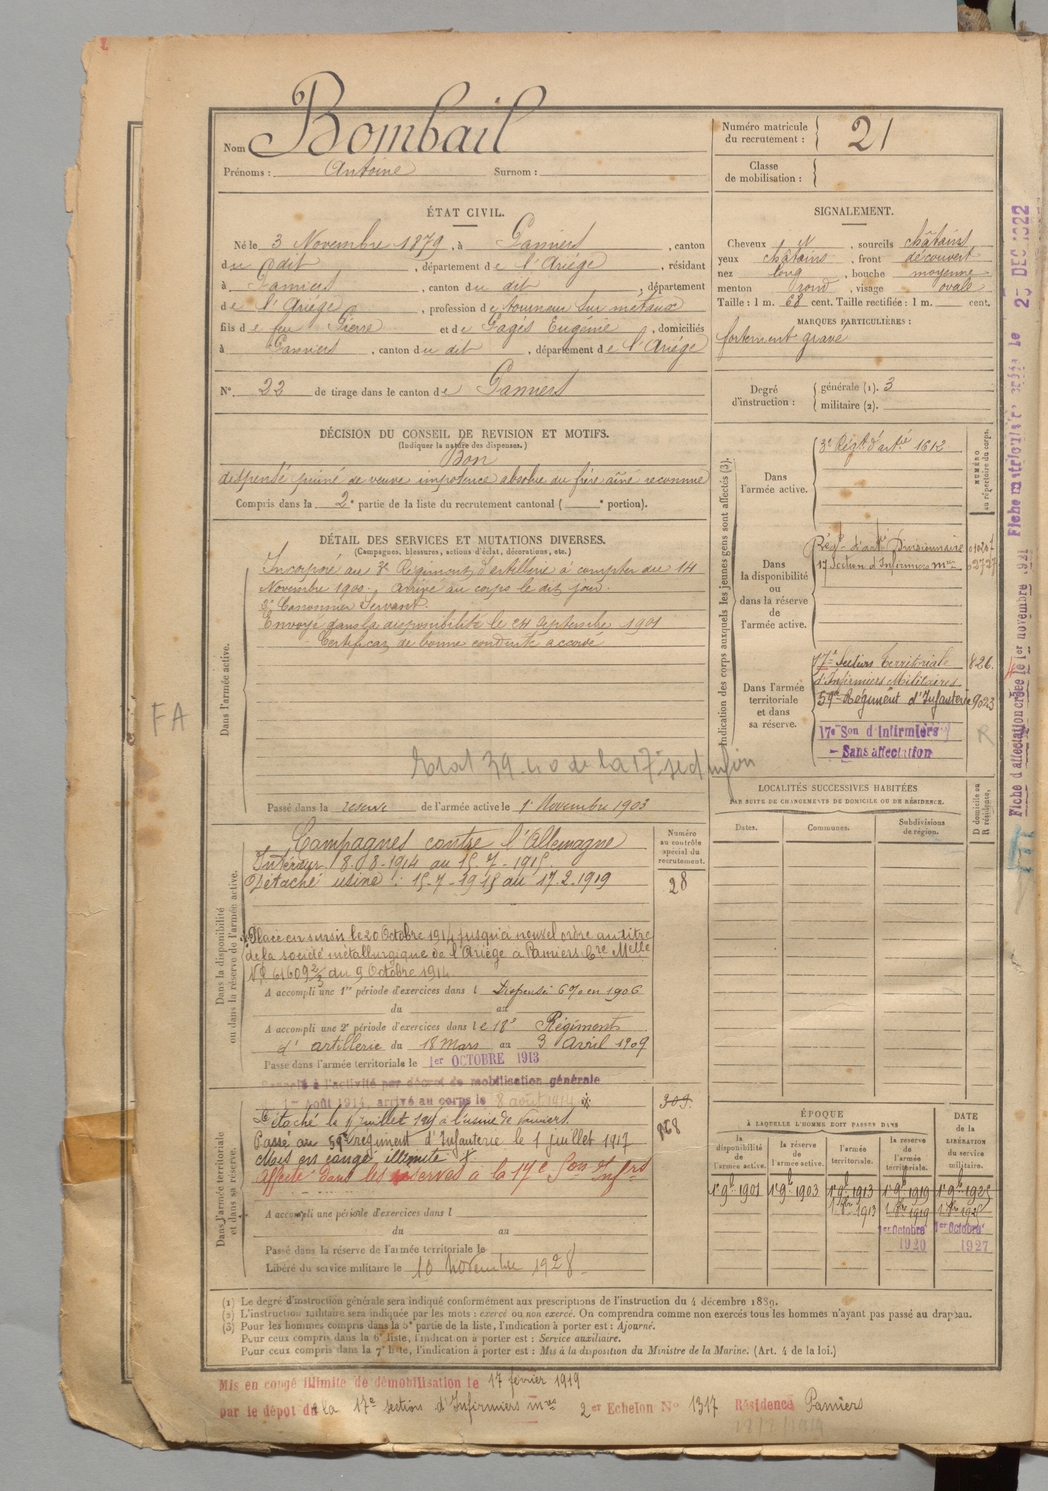 Nom Bombail
Prénoms : Antoine Surnom :
Numéro matricule du recrutement : 21
Classe de mobilisation :
ÉTAT CIVIL.
Né le 3 Novembre 1879, à Pamiers, canton
du dit, département de l'Ariége, résidant
à Pamiers, canton du dit, département
de l'Ariége, profession de tourneur sur métaux
fils de feu Pierre et de Pagés Eugénie, domiciliés
à Pamiers, canton du dit, département de l'Ariége
N° 22 de tirage dans le canton de Pamiers
SIGNALEMENT.
Cheveux et, sourcils châtains
yeux châtains, front découvert
nez long, bouche moyenne
menton rond, visage ovale
Taille : 1 m. 68 cent. Taille rectifiée : 1 m. cent.
MARQUES PARTICULIÈRES :
fortement gravé
Degré d'instruction : générale (1). 3
militaire (2).
DÉCISION DU CONSEIL DE REVISION ET MOTIFS.
(Indiquer la nature des dispenses.)
Bon
dispensé puiné de veuve impotence absolue du frère ainé reconnue
Compris dans la 2e partie de la liste du recrutement cantonal ( e portion).
DÉTAIL DES SERVICES ET MUTATIONS DIVERSES.
(Campagnes, blessures, actions d'éclat, décorations, etc.)
Dans l'armée active.
Incorporé au 3e Régiment d'artillerie à compter du 14
Novembre 1900, arrivé au corps le dit jour.
2e Canonnier Servant.
Envoyé dans la disponibilité le 24 Septembre 1901
Certificat de bonne conduite accordé
FA
Passé dans la réserve de l'armée active le 1er Novembre 1903
Indication des corps auxquels les jeunes gens sont affectés (3).
NUMÉRO au répertoire du corps.
Dans l'armée active.
3e Régt d'artie 1612
Dans la disponibilité ou dans la réserve de l'armée active.
Régt d'art Divisionnaire
17 Section d'Infirmiers mres
Dans l'armée territoriale et dans sa réserve.
17e Section Territoriale 826
d'Infirmiers Militaires
59e Régiment d'Infanterie 9023
17e Son d'Infirmiers
- Sans affectation
R
LOCALITÉS SUCCESSIVES HABITÉES
PAR SUITE DE CHANGEMENTS DE DOMICILE OU DE RÉSIDENCE.
Dates. Communes. Subdivisions de région. D domicile ou R résidence.
Dans la disponibilité ou dans la réserve de l'armée active.
Campagnes contre l'Allemagne
Intérieur. 8.08.1914 au 15.7.1915
Détaché usine : 15.7.1915 au 17.2.1919
Numéro au contrôle spécial du recrutement.
28
Placé en sursis le 20 Octobre 1914 jusqu'à nouvel ordre au titre
de la société métallurgique de l'Ariége à Pamiers Cre Melle
du 9 Octobre 1914
A accompli une 1re période d'exercices dans l Dispensé 6% en 1906
du au
A accompli une 2e période d'exercices dans le 18e Régiment
d'artillerie du 18 mars au 3 Avril 1909
Passé dans l'armée territoriale le 1er OCTOBRE 1913
Rappelé à l'activité par décret de mobilisation générale
1er août 1914, arrivé au corps le 8 août 1914
Dans l'armée territoriale et dans sa réserve.
Détaché le juillet 1915 à l'usine de Pamiers.
Passé au 59e régiment d'Infanterie le 1 juillet 1917
Mis en congé illimité X
Affecté dans les réserves à la 17e Son Infrs
A accompli une période d'exercices dans l
du au
Passé dans la réserve de l'armée territoriale le
Libéré du service militaire le 10 novembre 1928
ÉPOQUE
A LAQUELLE L'HOMME DOIT PASSER DANS
la disponibilité de l'armée active. la réserve de l'armée active. l'armée territoriale. la réserve de l'armée territoriale.
DATE de la LIBÉRATION du service militaire.
1er 9bre 1901 1er 9bre 1903 1er 9bre 1913 1er 9bre 1919
1er Octobre 1920 1er Octobre 1927
(1) Le degré d'instruction générale sera indiqué conformément aux prescriptions de l'instruction du 4 décembre 1889.
(2) L'instruction militaire sera indiquée par les mots : exercé ou non exercé. On comprendra comme non exercés tous les hommes n'ayant pas passé au drapeau.
(3) Pour les hommes compris dans la 5e partie de la liste, l'indication à porter est : Ajourné.
Pour ceux compris dans la 6e liste, l'indication à porter est : Service auxiliaire.
Pour ceux compris dans la 7e liste, l'indication à porter est : Mis à la disposition du Ministre de la Marine. (Art. 4 de la loi.)
Mis en congé illimité de démobilisation le 17 février 1919
par le dépôt de la 17e section d'Infirmiers mres 2er Echelon N° 1317 Résidence Pamiers
Fiche d'affectation créée le 1er novembre 1921 Fiche matriculaire créée le 25 DEC 1922